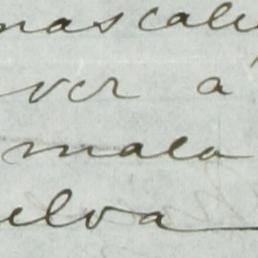 mascali
ver à
mala
elva